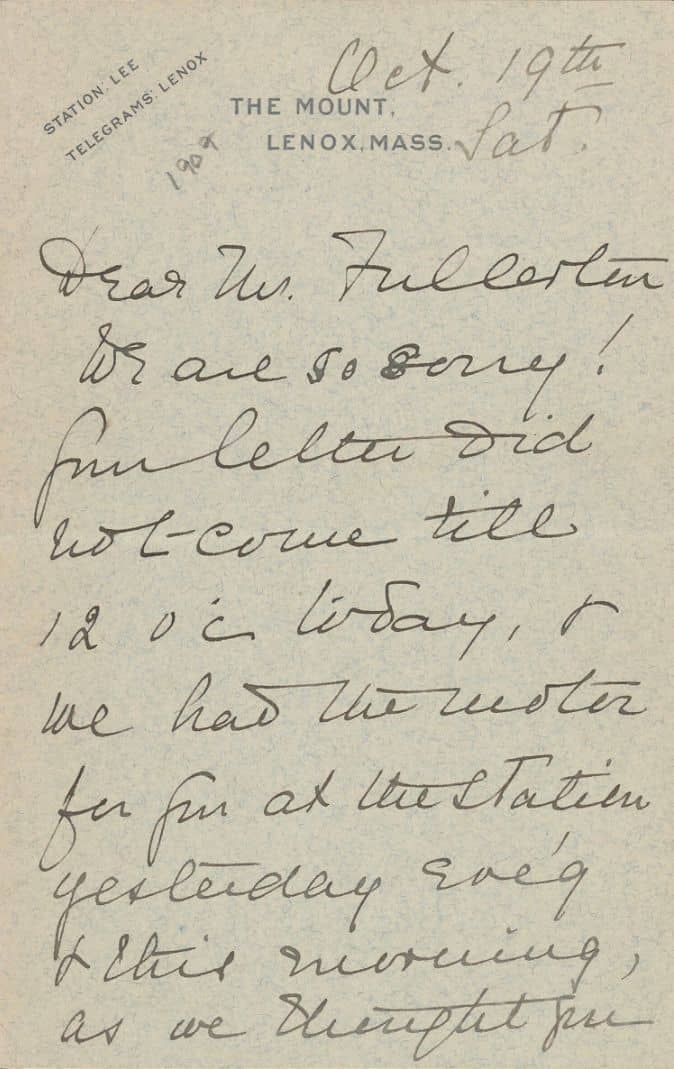 STATION: LEE
TELEGRAMS: LENOX
Oct. 19th
THE MOUNT,
LENOX, MASS.
Sat.
Dear Mr. Fullerton
We are so sorry!
Your letter did
not come till
12 o'c today, &
we had the motor
for you at the station
yesterday eve'g
& this morning,
as we thought you